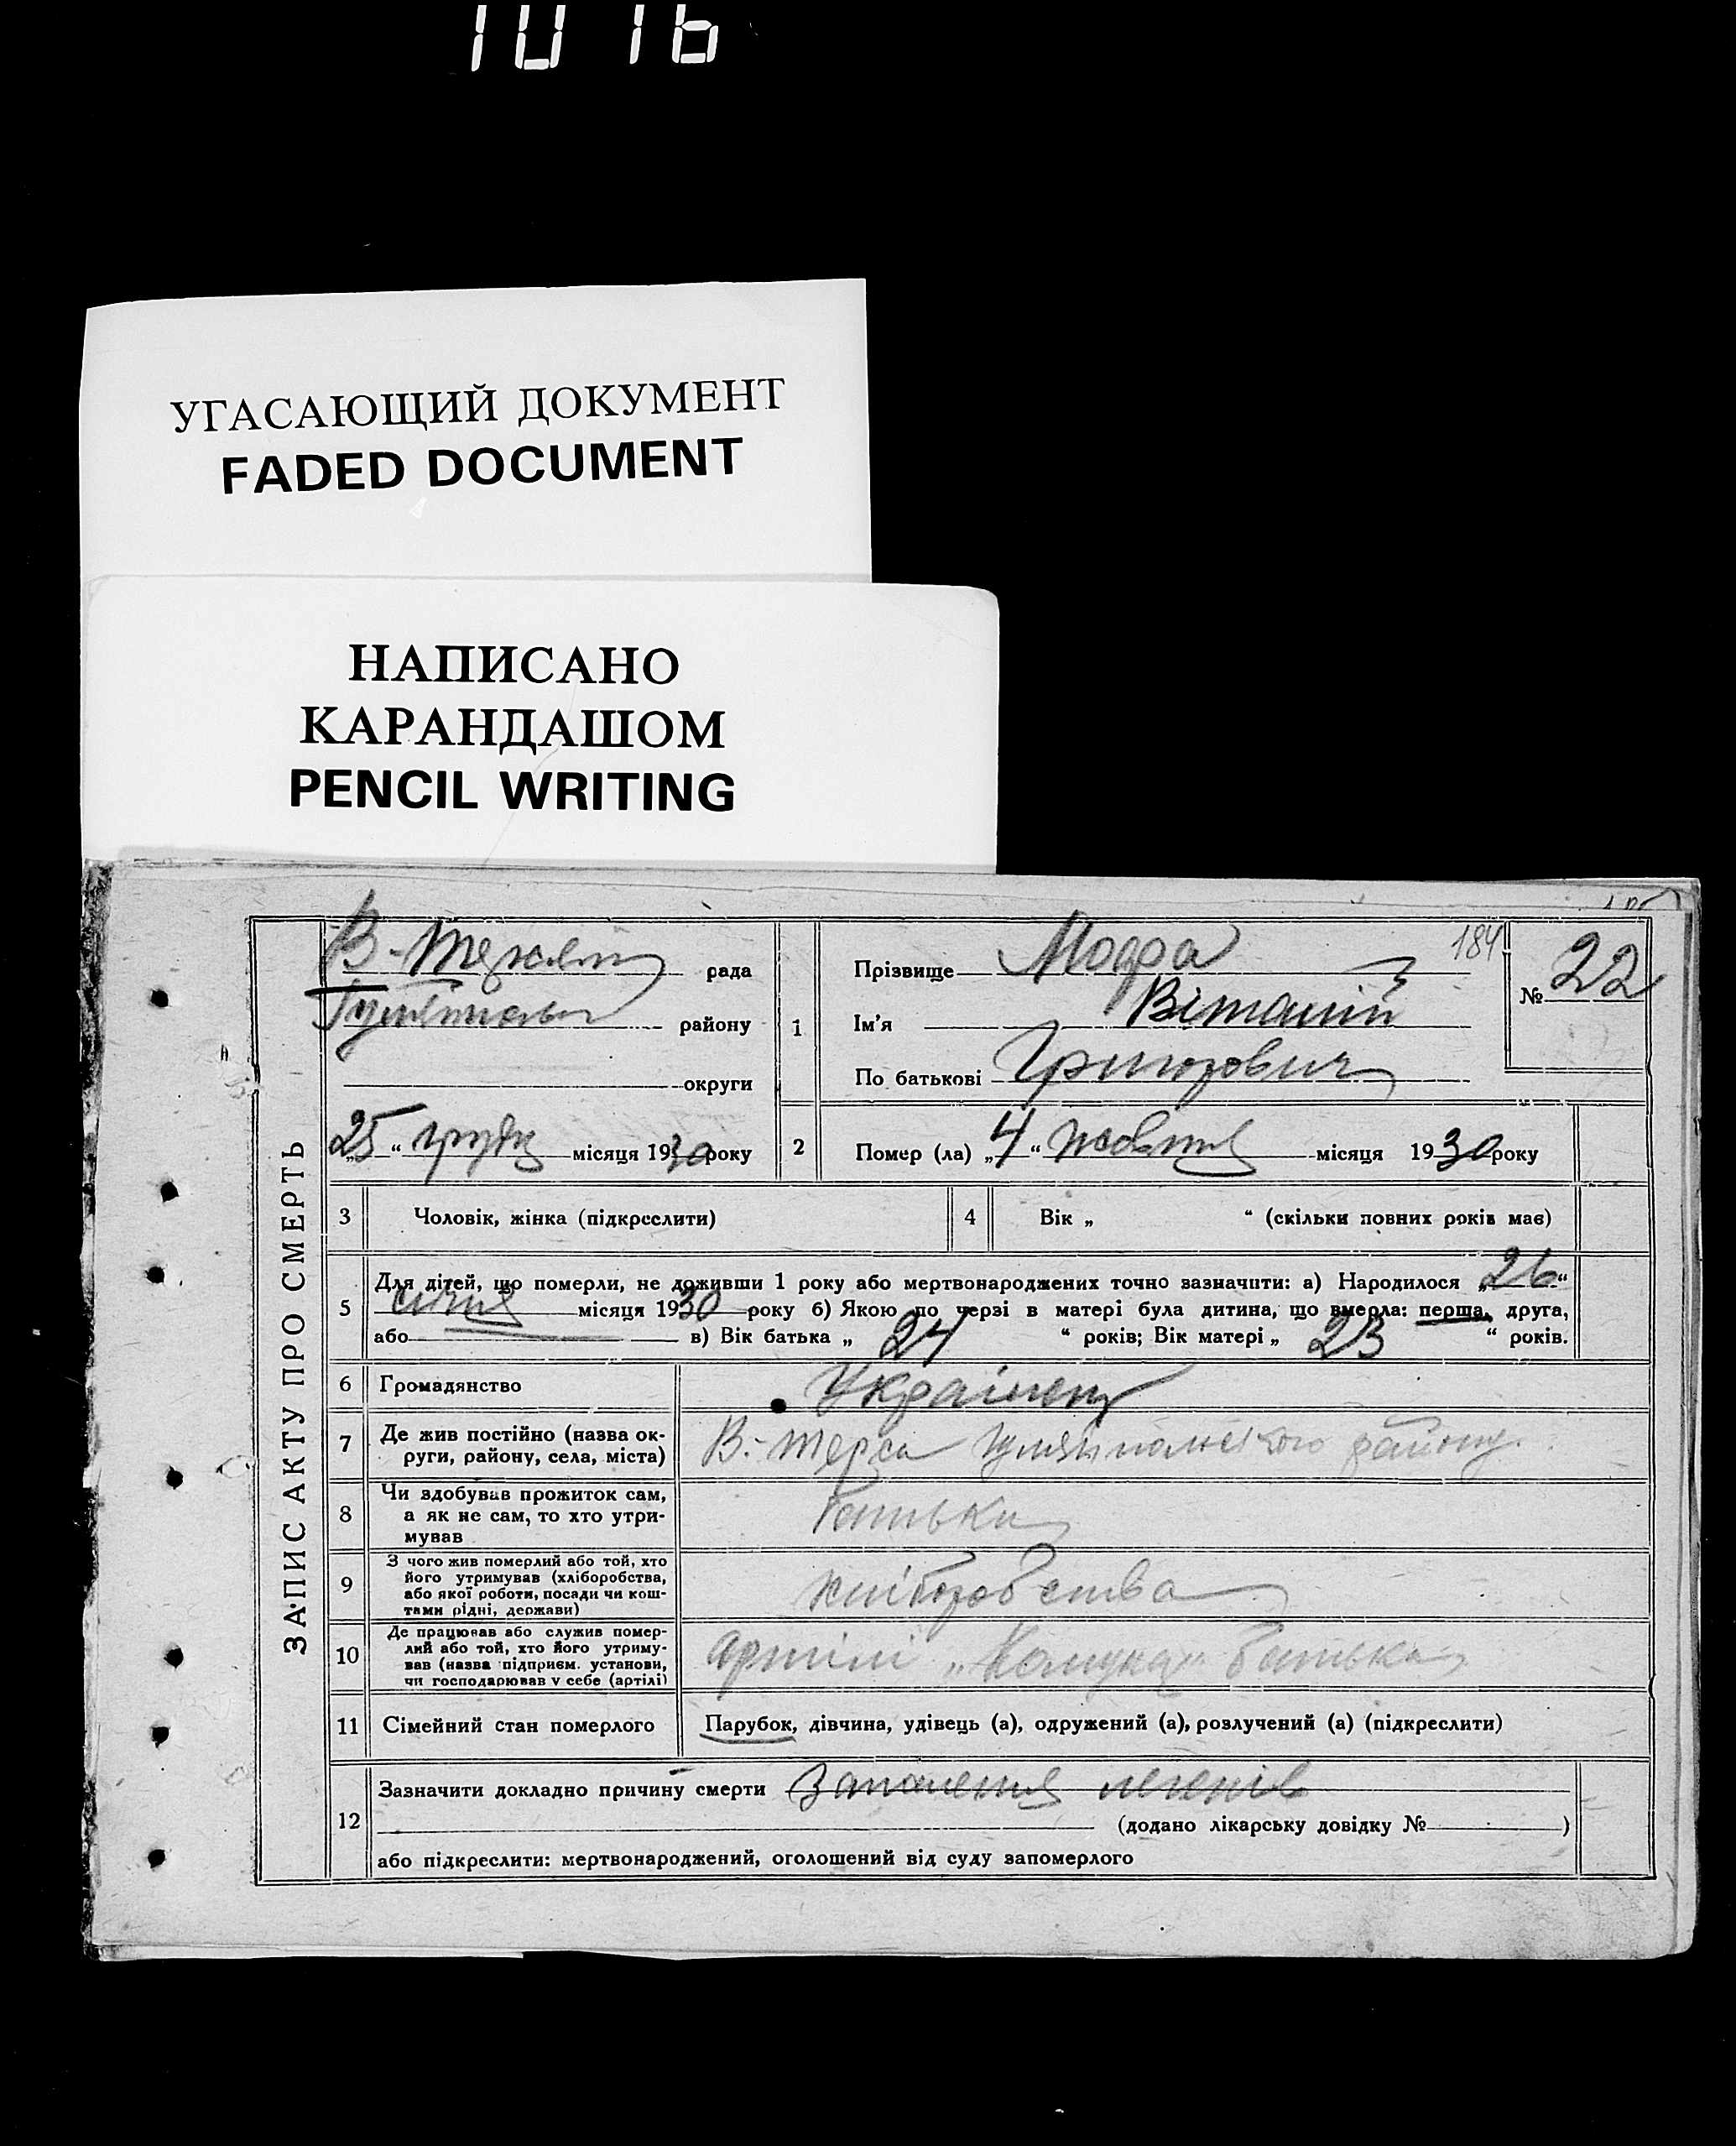 1016
УГАСАЮЩИЙ ДОКУМЕНТ
FADED DOCUMENT
НАПИСАНО
КАРАНДАШОМ
PENCIL WRITING
ЗАПИС АКТУ ПРО СМЕРТЬ
рада
району
округи
„25“ грудн місяця 1930 року
1
Прізвище Модра
184
№ 22
Ім'я Віталій
По батькові Григорович
2
Помер (ла) „4“ жовтня місяця 1930 року
3 Чоловік, жінка (підкреслити)
4 Вік „ “ (скільки повних років має)
5 Для дітей, що померли, не доживши 1 року або мертвонароджених точно зазначити: а) Народилося „26“
січня місяця 1930 року б) Якою по черзі в матері була дитина, що вмерла: перша, друга,
або в) Вік батька „ 24 “ років; Вік матері „ 23 “ років.
6 Громадянство Українец
7 Де жив постійно (назва ок-
руги, району, села, міста) В.-Терса Гуляйпольського району.
8 Чи здобував прожиток сам,
а як не сам, то хто утри-
мував
Батьки
9 З чого жив померлий або той, хто
його утримував (хліборобства,
або якої роботи, посади чи кош-
тами рідні, держави)
хліборобства
10 Де працював або служив помер-
лий або той, хто його утриму-
вав (назва підприєм. установи,
чи господарював у себе (артілі)
Артілі батька
11 Сімейний стан померлого Парубок, дівчина, удівець (а), одружений (а), розлучений (а) (підкреслити)
12 Зазначити докладно причину смерти Запалення легенів
(додано лікарську довідку № )
або підкреслити: мертвонароджений, оголошений від суду запомерлого